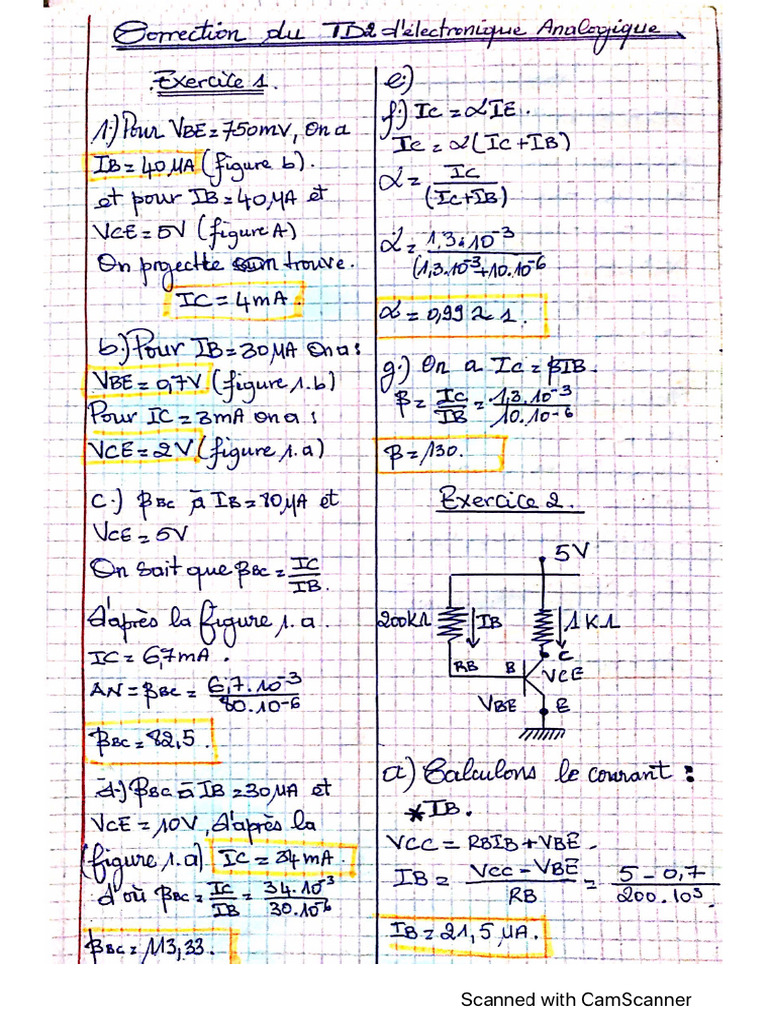 Correction du TD2 d'électronique Analogique.
Exercice 1.
1.) Pour VBE = 750mV, on a
IB = 40 µA (figure b).
et pour IB = 40 µA et
VCE = 5V (figure A)
On projectte trouve.
IC = 4mA.
b.) Pour IB = 30 µA on a :
VBE = 0,7V (figure 1.b)
Pour IC = 3mA on a :
VCE = 2V (figure 1.a)
C.) βBC à IB = 80 µA et
VCE = 5V
On sait que βBC = IC/IB.
d'après la figure 1.a.
IC = 6,7mA.
AN = βBC = 6,7.10-3/80.10-6
βBC = 82,5.
d.) βBC à IB = 30 µA et
VCE = 10V, d'après la
(figure 1.a) IC = 34mA.
d'où βBC = IC/IB = 34.10-3/30.10-6
βBC = 113,33.
e.)
f.) IC = αIE.
IC = α(IC+IB)
α = IC/(IC+IB)
α = 1,3.10-3/(1,3.10-3+10.10-6
α = 0,99 ≈ 1.
g.) On a IC = βIB.
β = IC/IB = 1,3.10-3/10.10-6
β = 130.
Exercice 2.
5V
200KΩ IB 1KΩ
C
RB B VCE
VBE E
a) Calculons le courant :
* IB.
VCC = RBIB + VBE.
IB = VCC - VBE/RB = 5 - 0,7/200.103
IB = 21,5 µA.
Scanned with CamScanner